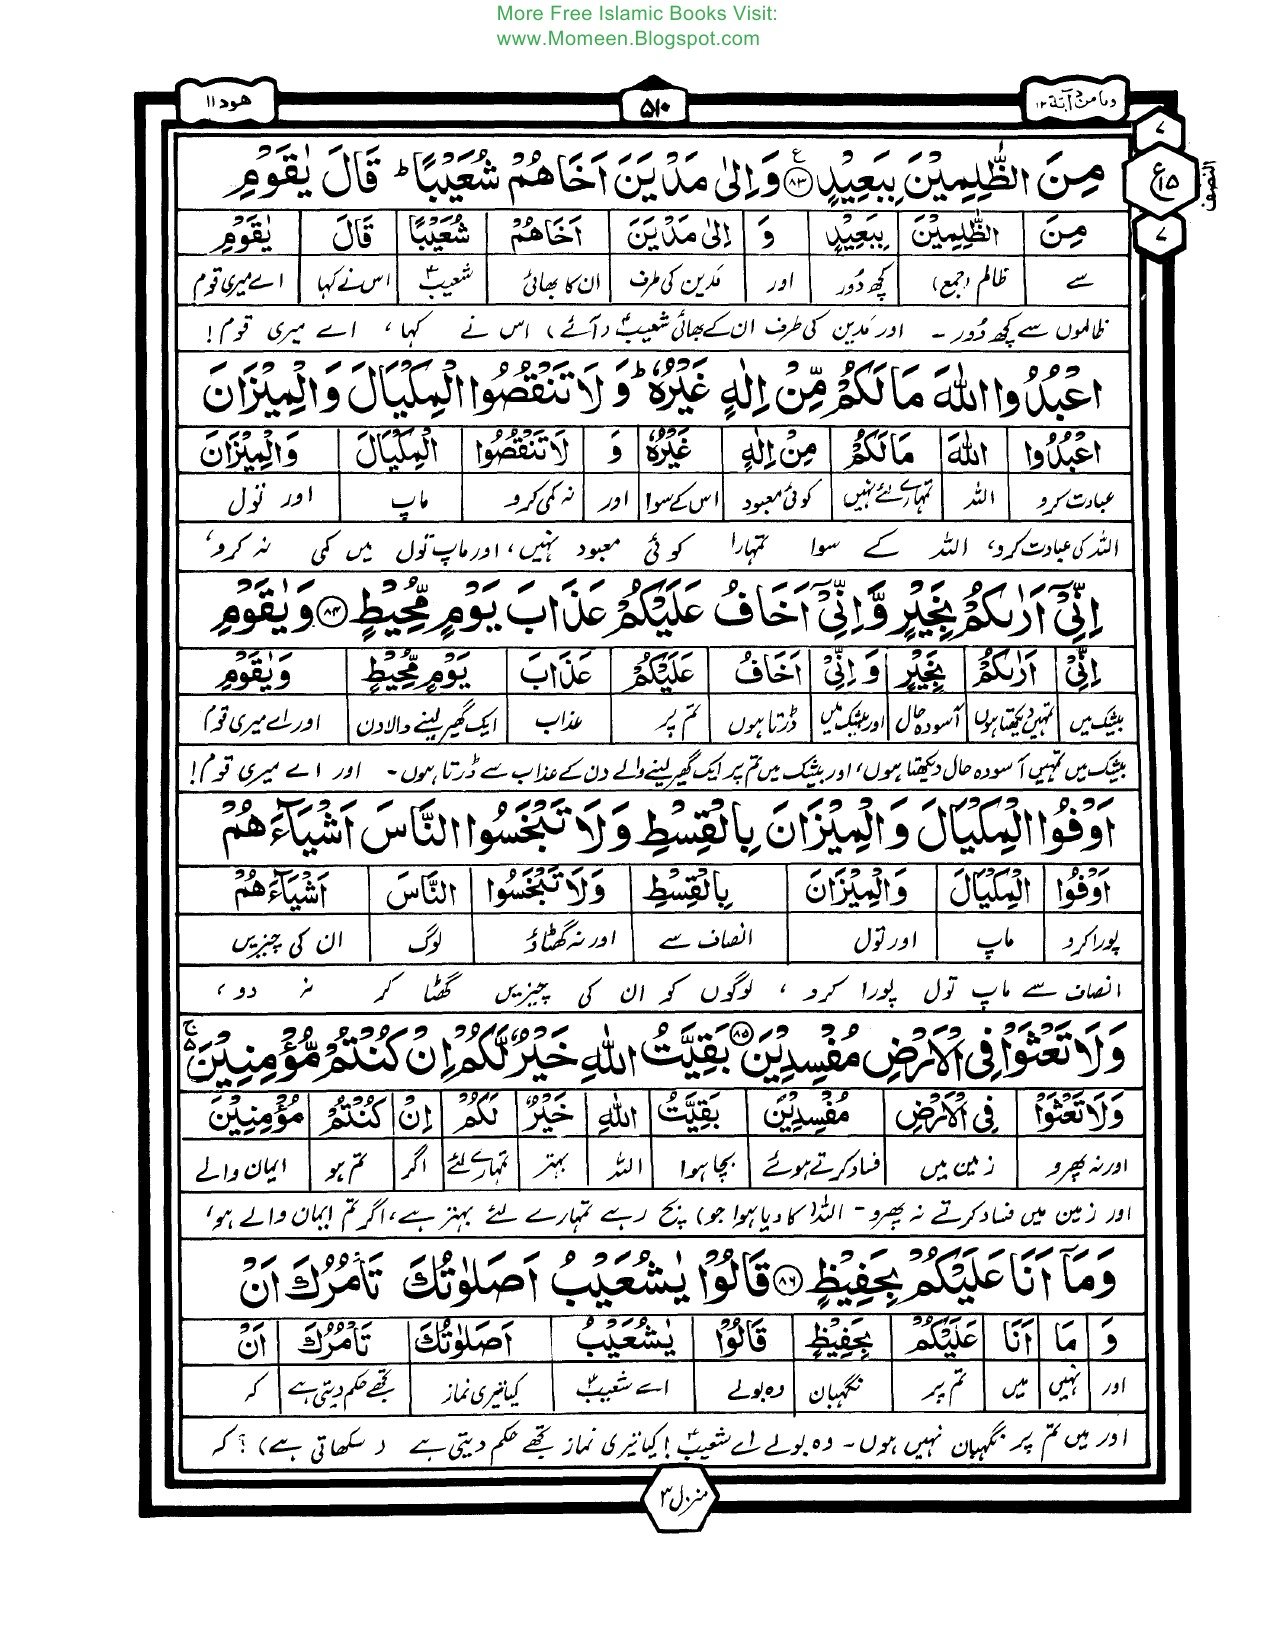 More Free Islamic Books Visit:
www.Momeen.Blogspot.com
وما من دآبة ۱۲
۵۱۰
هود ۱۱
مِنَ الظّٰلِمِيْنَ بِبَعِيْدٍ ۸۳ وَ اِلٰى مَدْيَنَ اَخَاهُمْ شُعَيْبًا ؕ قَالَ يٰقَوْمِ
مِنَ الظّٰلِمِيْنَ بِبَعِيْدٍ وَ اِلٰى مَدْيَنَ اَخَاهُمْ شُعَيْبًا قَالَ يٰقَوْمِ
سے ظالم (جمع) کچھ دُور اور مَدین کی طرف ان کا بھائی شعیبؑ اس نے کہا اے میری قوم
ظالموں سے کچھ دُور ۔ اور مَدین کی طرف ان کے بھائی شعیبؑ (آئے) اس نے کہا، اے میری قوم!
اعْبُدُوا اللّٰهَ مَا لَكُمْ مِّنْ اِلٰهٍ غَيْرُهٗ ؕ وَ لَا تَنْقُصُوا الْمِكْيَالَ وَالْمِيْزَانَ
اعْبُدُوا اللّٰهَ مَا لَكُمْ مِنْ اِلٰهٍ غَيْرُهٗ وَ لَا تَنْقُصُوا الْمِكْيَالَ وَالْمِيْزَانَ
عبادت کرو اللہ تمہارے لئے نہیں کوئی معبود اس کے سوا اور نہ کمی کرو ماپ اور تول
اللہ کی عبادت کرو، اللہ کے سوا تمہارا کوئی معبود نہیں، اور ماپ تول میں کمی نہ کرو،
اِنِّيْٓ اَرٰىكُمْ بِخَيْرٍ وَّاِنِّيْٓ اَخَافُ عَلَيْكُمْ عَذَابَ يَوْمٍ مُّحِيْطٍ ۸۴ وَيٰقَوْمِ
اِنِّيْ اَرٰىكُمْ بِخَيْرٍ وَ اِنِّيْ اَخَافُ عَلَيْكُمْ عَذَابَ يَوْمٍ مُّحِيْطٍ وَيٰقَوْمِ
بیشک میں تمہیں دیکھتا ہوں آسودہ حال اور بیشک میں ڈرتا ہوں تم پر عذاب ایک گھیر لینے والا دن اور اے میری قوم
بیشک میں تمہیں آسودہ حال دیکھتا ہوں، اور بیشک میں تم پر ایک گھیر لینے والے دن کے عذاب سے ڈرتا ہوں ۔ اور اے میری قوم!
اَوْفُوا الْمِكْيَالَ وَالْمِيْزَانَ بِالْقِسْطِ وَلَا تَبْخَسُوا النَّاسَ اَشْيَآءَهُمْ
اَوْفُوا الْمِكْيَالَ وَالْمِيْزَانَ بِالْقِسْطِ وَلَا تَبْخَسُوا النَّاسَ اَشْيَآءَهُمْ
پورا کرو ماپ اور تول انصاف سے اور نہ گھٹاؤ لوگ ان کی چیزیں
انصاف سے ماپ تول پورا کرو، لوگوں کو ان کی چیزیں گھٹا کر نہ دو،
وَلَا تَعْثَوْا فِي الْاَرْضِ مُفْسِدِيْنَ ۸۵ بَقِيَّتُ اللّٰهِ خَيْرٌ لَّكُمْ اِنْ كُنْتُمْ مُّؤْمِنِيْنَ ۵ ج
وَلَا تَعْثَوْا فِي الْاَرْضِ مُفْسِدِيْنَ بَقِيَّتُ اللّٰهِ خَيْرٌ لَكُمْ اِنْ كُنْتُمْ مُؤْمِنِيْنَ
اور نہ پھرو زمین میں فساد کرتے ہوئے بچا ہوا اللہ بہتر تمہارے لئے اگر تم ہو ایمان والے
اور زمین میں فساد کرتے نہ پھرو ۔ اللہ (کا دیا ہوا جو) بچ رہے تمہارے لئے بہتر ہے، اگر تم ایمان والے ہو،
وَمَآ اَنَا عَلَيْكُمْ بِحَفِيْظٍ ۸۶ قَالُوْا يٰشُعَيْبُ اَصَلٰوتُكَ تَاْمُرُكَ اَنْ
وَ مَا اَنَا عَلَيْكُمْ بِحَفِيْظٍ قَالُوْا يٰشُعَيْبُ اَصَلٰوتُكَ تَاْمُرُكَ اَنْ
اور نہیں میں تم پر نگہبان وہ بولے اے شعیبؑ کیا تیری نماز تجھے حکم دیتی ہے کہ
اور میں تم پر نگہبان نہیں ہوں ۔ وہ بولے اے شعیبؑ! کیا تیری نماز تجھے حکم دیتی ہے (سکھاتی ہے)؟ کہ
منزل ۳
۷
ع ۱۵
۷
النصف